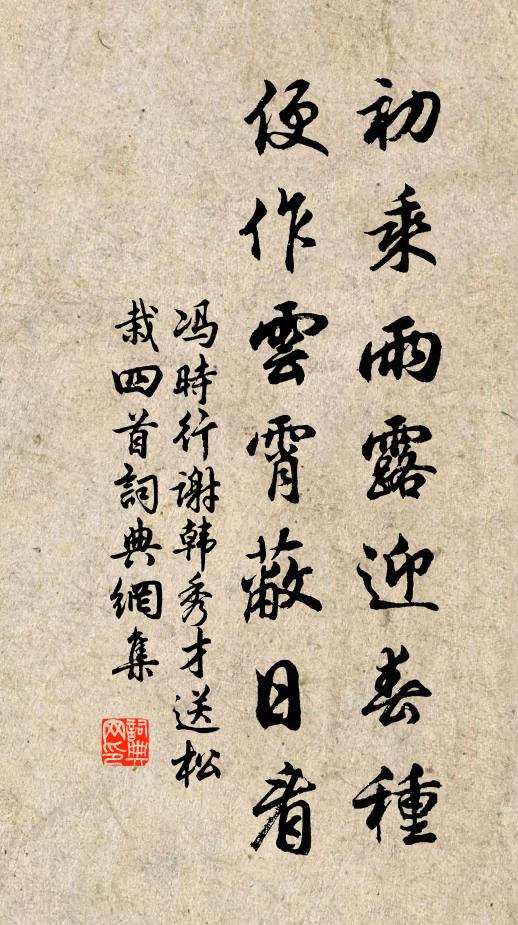 初乘雨露迎春種
便作雲霄蔽日看
冯時行谢韩秀才送松
栽四首詞典網集
詞典
网印